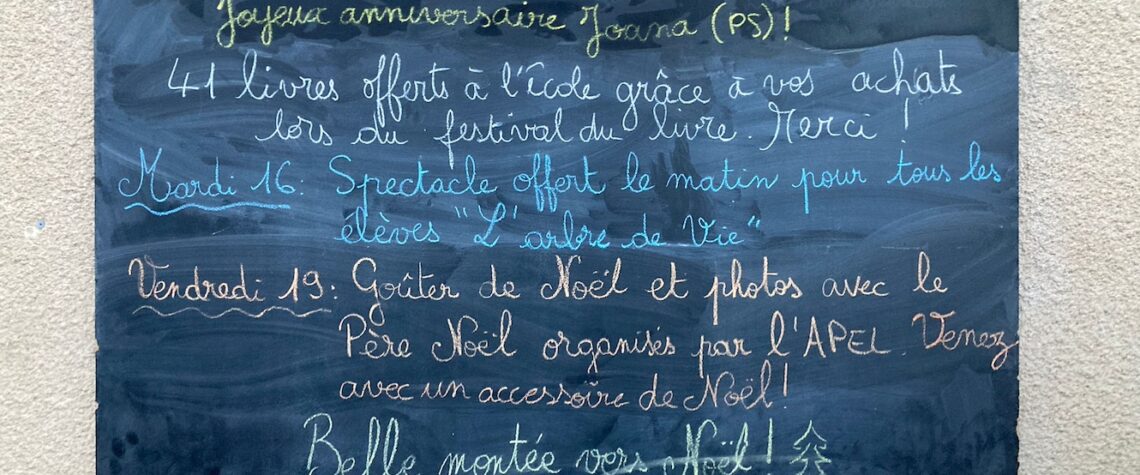 Joyeux anniversaire Joana (PS)!
41 livres offerts à l'École grâce à vos achats
lors du festival du livre. Merci !
Mardi 16: Spectacle offert le matin pour tous les
élèves "L'arbre de Vie"
Vendredi 19: Goûter de Noël et photos avec le
Père Noël organisés par l'APEL. Venez
avec un accessoire de Noël!
Belle montée vers Noël!